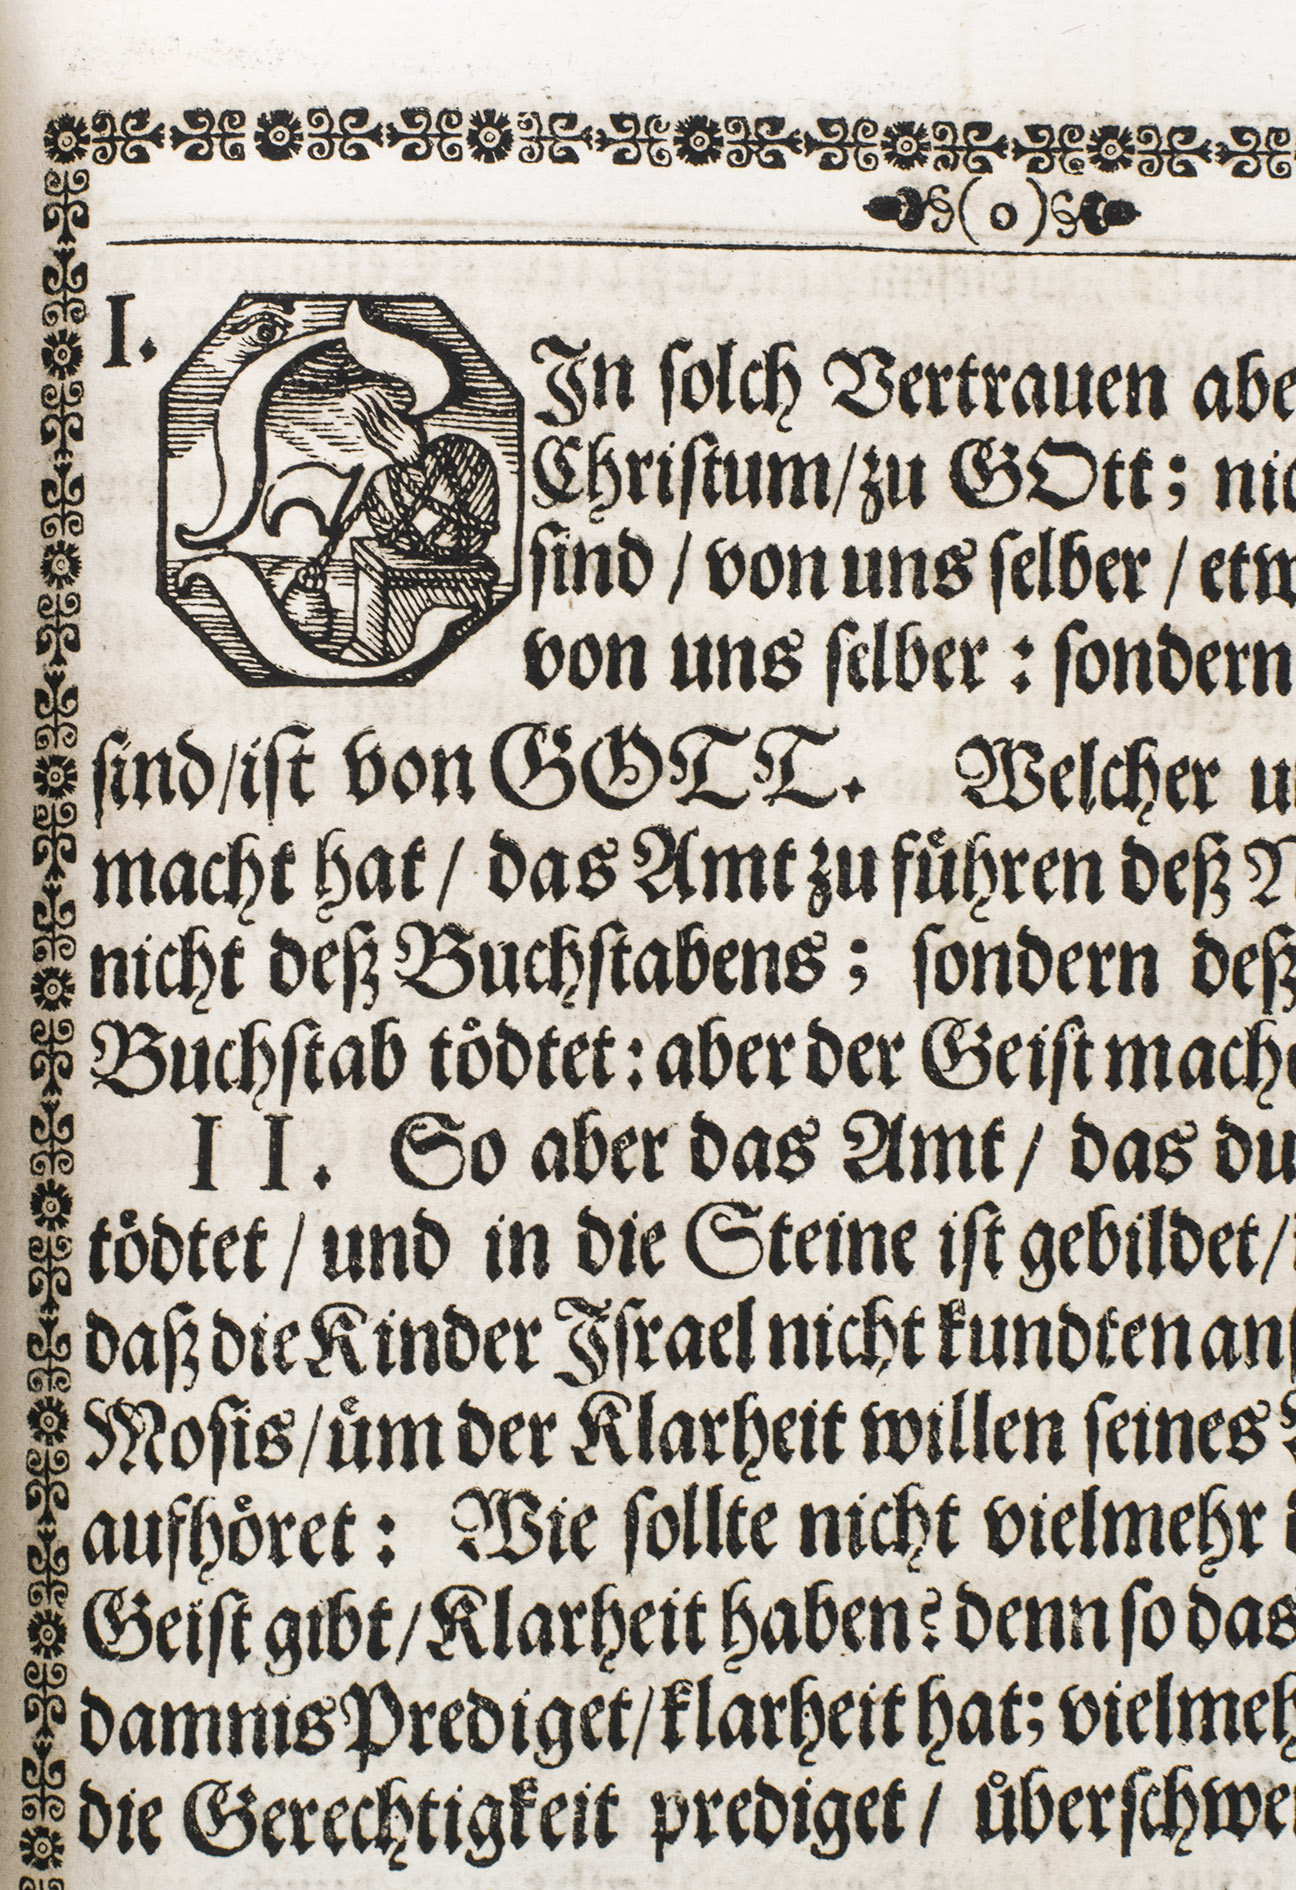 (o)
I. EIn solch Vertrauen abe
Christum/zu GOtt; nic
sind / von uns selber / etw
von uns selber : sondern
sind/ist von GOTT. Welcher u
macht hat / das Amt zu führen deß N
nicht deß Buchstabens ; sondern deß
Buchstab tödtet : aber der Geist mache
II. So aber das Amt / das du
tödtet / und in die Steine ist gebildet/
daß die Kinder Israel nicht kundten ans
Mosis/üm der Klarheit willen seines
aufhöret : Wie sollte nicht vielmehr
Geist gibt/Klarheit haben? denn so das
damnis Prediget/klarheit hat; vielmeh
die Gerechtigkeit prediget / überschwe